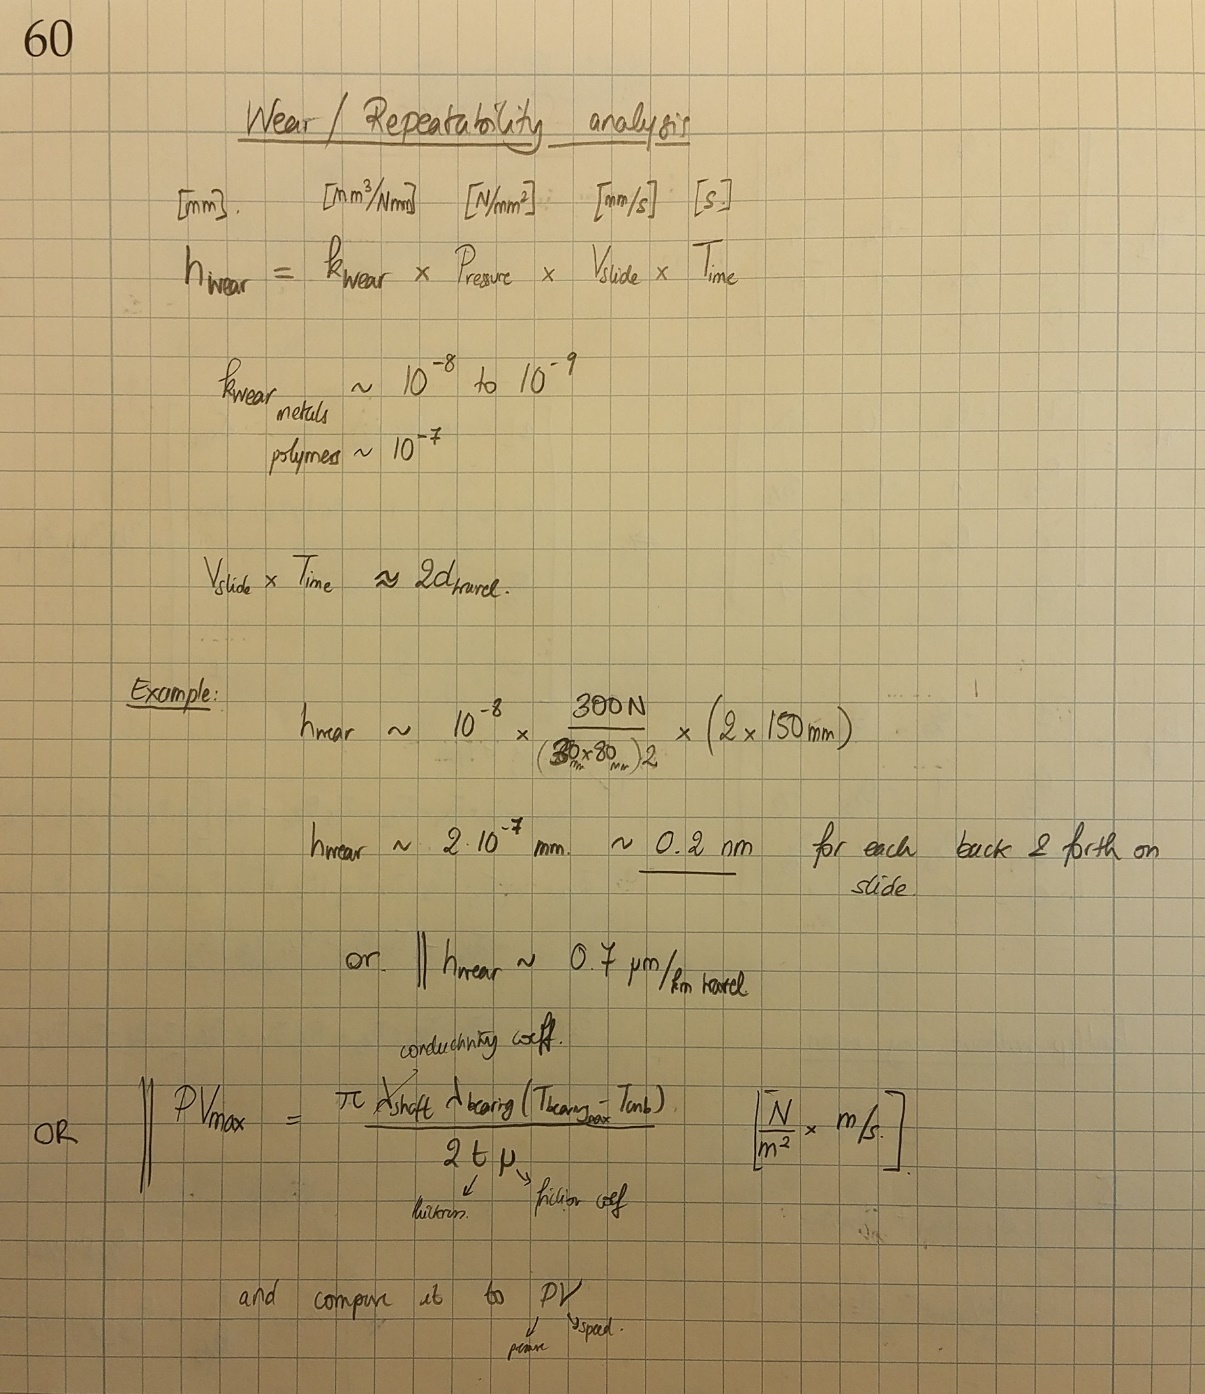 60
Wear / Repeatability analysis
[mm]. [mm³/Nmm] [N/mm²] [mm/s] [s.]
hwear = kwear × Pressure × Vslide × Time
kwear metals ~ 10⁻⁸ to 10⁻⁹
polymers ~ 10⁻⁷
Vslide × Time ≈ 2dtravel.
Example:
hwear ~ 10⁻⁸ × 300N / (30mm×80mm)2 × (2 × 150mm)
hwear ~ 2·10⁻⁷ mm. ~ 0.2 nm for each back & forth on
slide.
or. || hwear ~ 0.7 μm/km travel
conductivity coeff.
OR || PVmax = π dshaft λbearing (Tbearing max - Tamb) / 2 t μ [N/m² × m/s.].
thickness. friction coef
and compare it to PV
pressure speed.